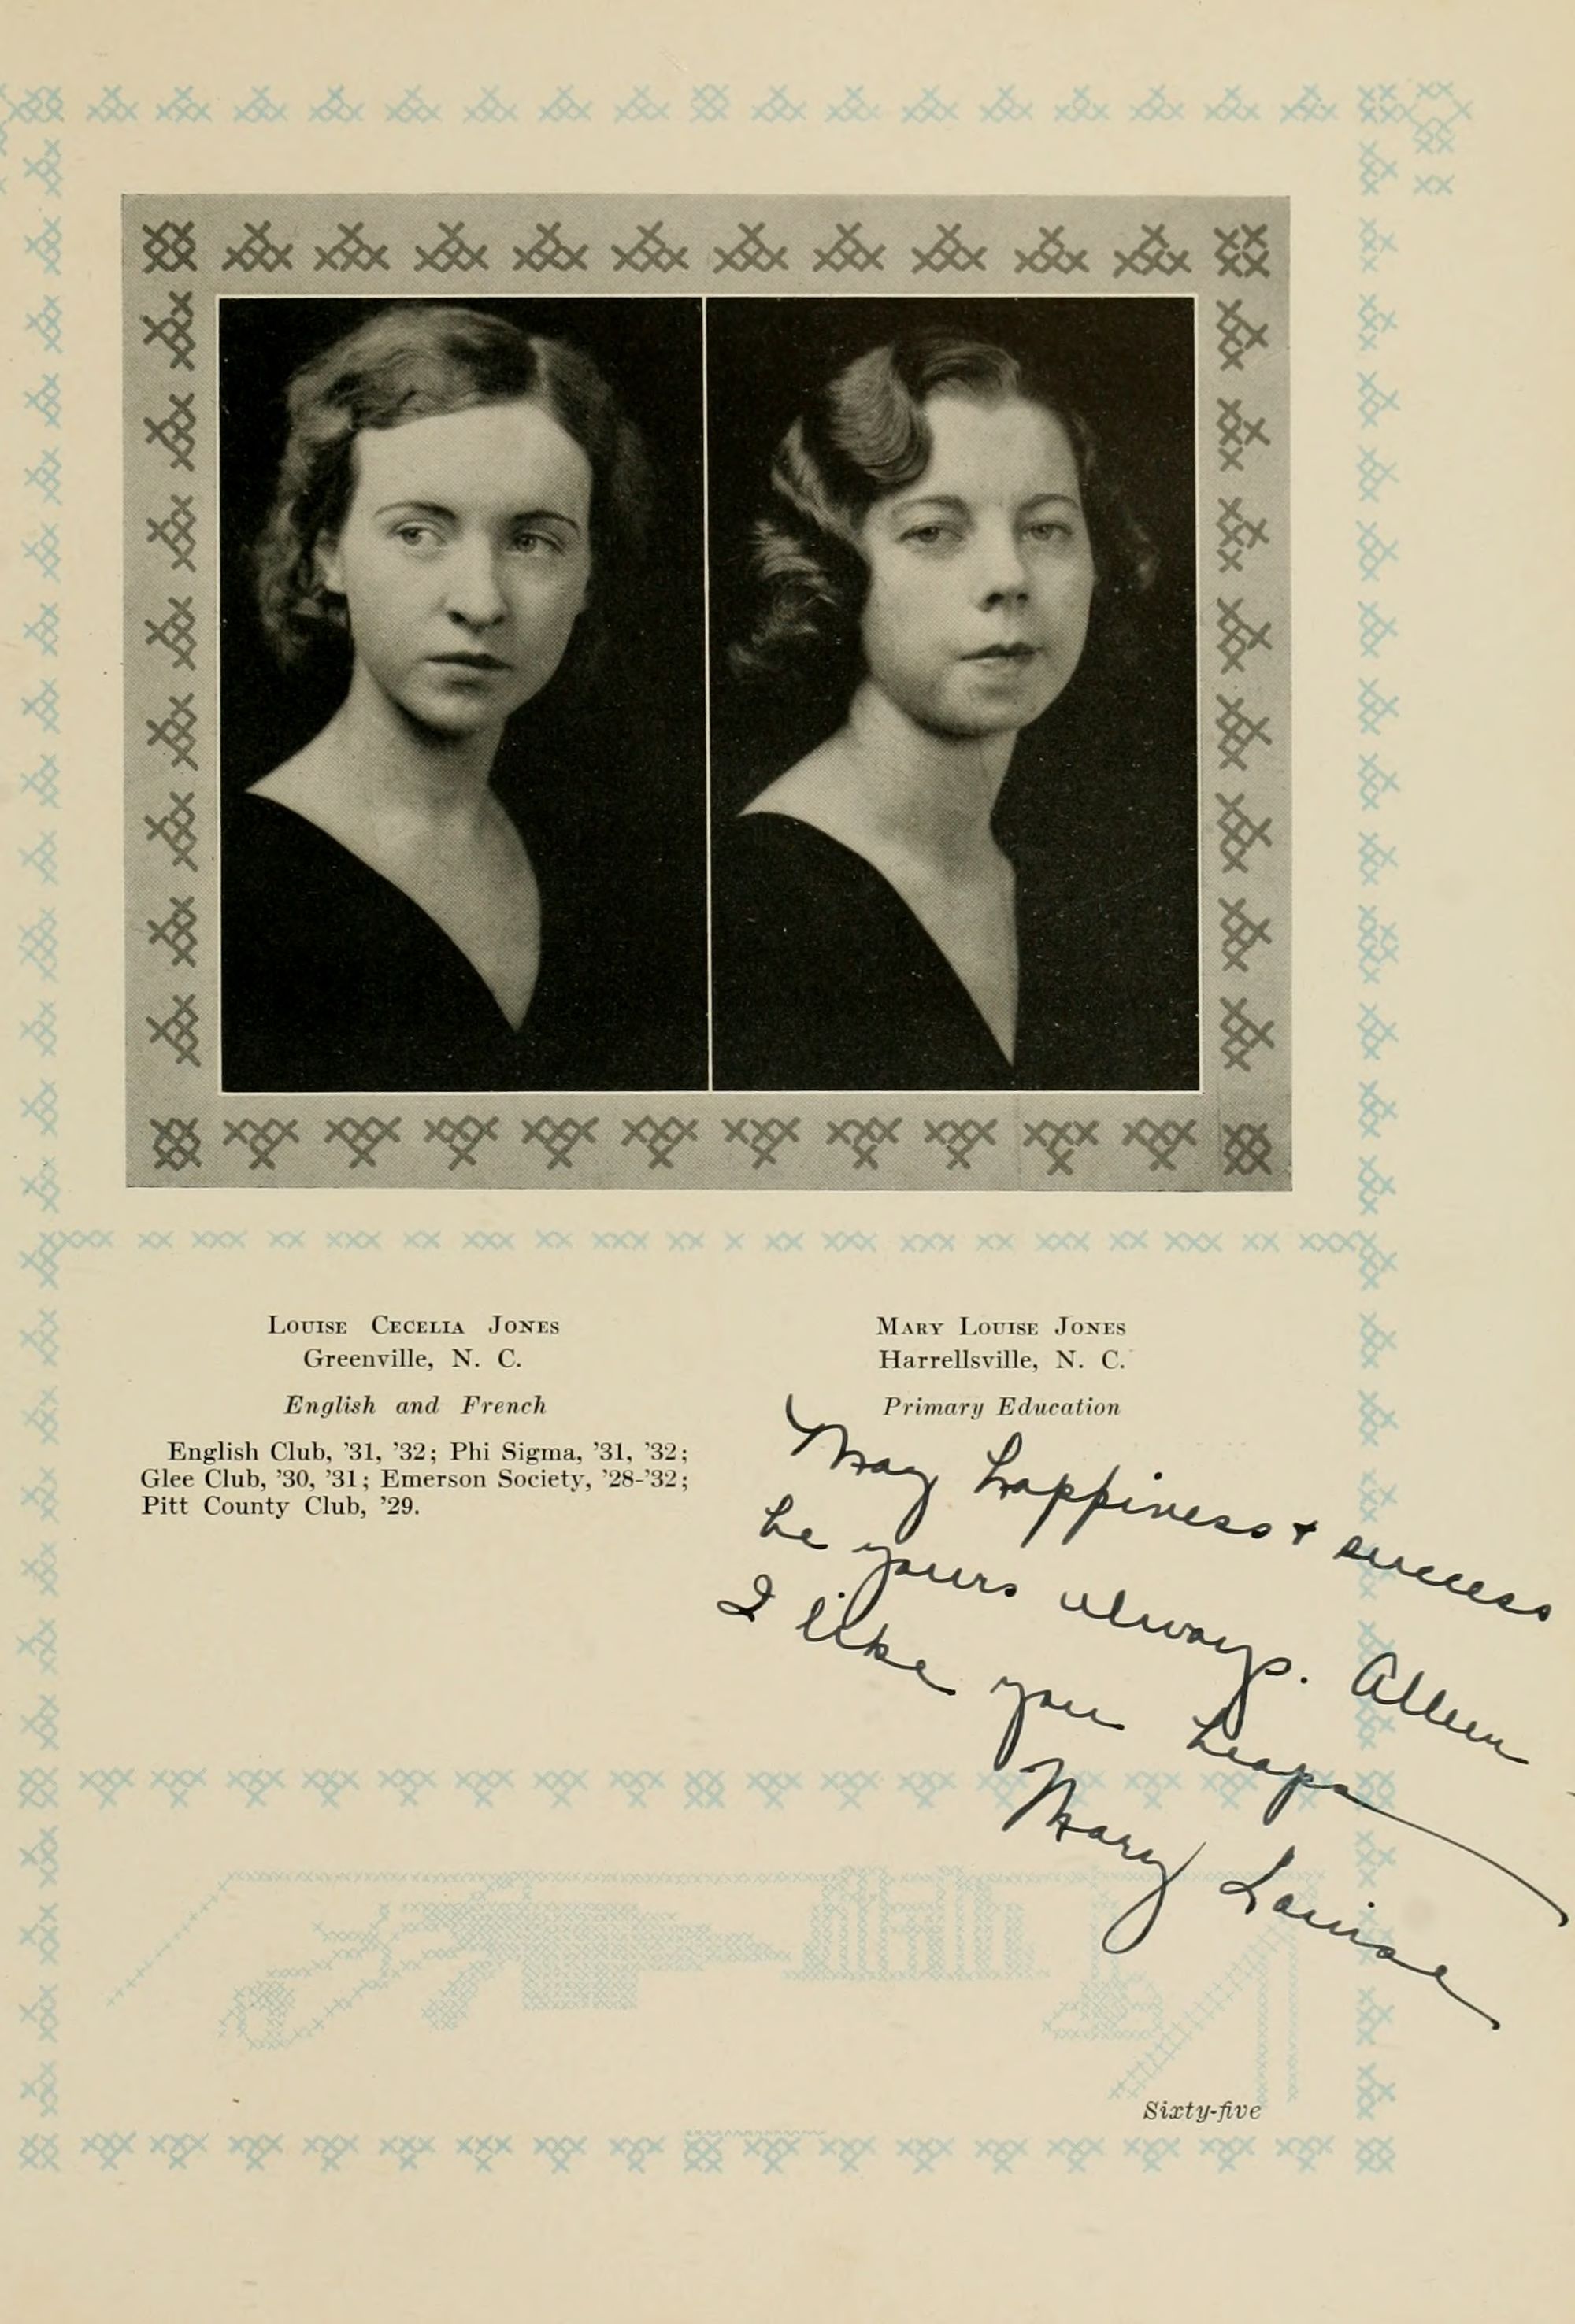 LOUISE CECELIA JONES
Greenville, N. C.
English and French
English Club, '31, '32; Phi Sigma, '31, '32;
Glee Club, '30, '31; Emerson Society, '28-'32;
Pitt County Club, '29.
MARY LOUISE JONES
Harrellsville, N. C.
Primary Education
May happiness + success
be yours always. Alleen
I like you heaps
Mary Louise
Sixty-five